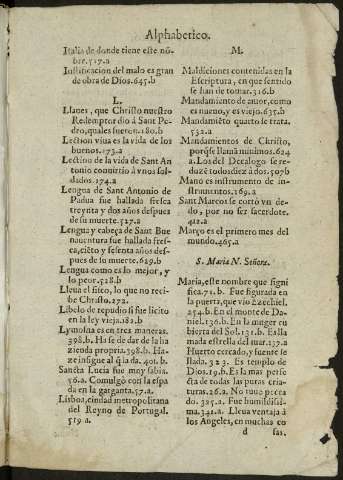 Alphabetico.
Italia de donde tiene este nō-
bre. 517.a
Iustificacion del malo es gran
de obra de Dios. 645.b
L.
Llanes, que Christo nuestro
Redemptor dio à Sant Pe-
dro, quales fueron. 180.b
Lection viua es la vida de los
buenos. 173.a
Lection de la vida de Sant An
tonio conuirtio à vnos sol-
dados. 174.a
Lengua de Sant Antonio de
Padua fue hallada fresca
treynta y dos años despues
de su muerte. 527.a
Lengua y cabeça de Sant Bue
nauentura fue hallada fres-
ca, ciēto y sesenta años des-
pues de su muerte. 629.b
Lengua como es lo mejor, y
lo peor. 528.b
Lleua el fisco, lo que no reci-
be Christo. 272.
Libelo de repudio si fue licito
en la ley vieja. 182.b
Lymosna es en tres maneras.
398.b. Ha se de dar de la ha
zienda propria. 398.b. Ha-
ze insigne al q̄ la da. 401.b
Sancta Lucia fue muy sabia.
56.a. Comulgò con la espa
da en la garganta. 57.a.
Lisboa, ciudad metropolitana
del Reyno de Portugal.
519.a.
M.
Maldiciones contenidas en la
Escriptura, en que sentido
se han de tomar. 316.b
Mandamiento de amor, como
es nueuo, y es viejo. 635.b
Mandamiēto quarto se trata.
532.a
Mandamientos de Christo,
porq̄ se llamā minimos. 624
a. Los del Decalogo se re-
duzē todos diez à dos. 507b
Mano es instrumento de in-
strumentos. 169.a
Sant Marcos se cortò vn de-
do, por no ser sacerdote.
412.a
Março es el primero mes del
mundo. 465.a
S. Maria N. Señora.
Maria, este nombre que signi
fica. 71.b. Fue figurada en
la puerta, que vio Ezechiel.
254.b. En el monte de Da-
niel. 136.b. En la muger cu
bierta del Sol. 131.b. Es lla
mada estrella del mar. 137.a
Huerto cercado, y fuente se
llada. 323. Es templo de
Dios. 19.b. Es la mas perfe
cta de todas las puras cria-
turas. 26.a. No tuuo pecca
do. 325.a. Fue humildissi-
ma. 342.a. Lleua ventaja à
los Angeles, en muchas co
d sas.